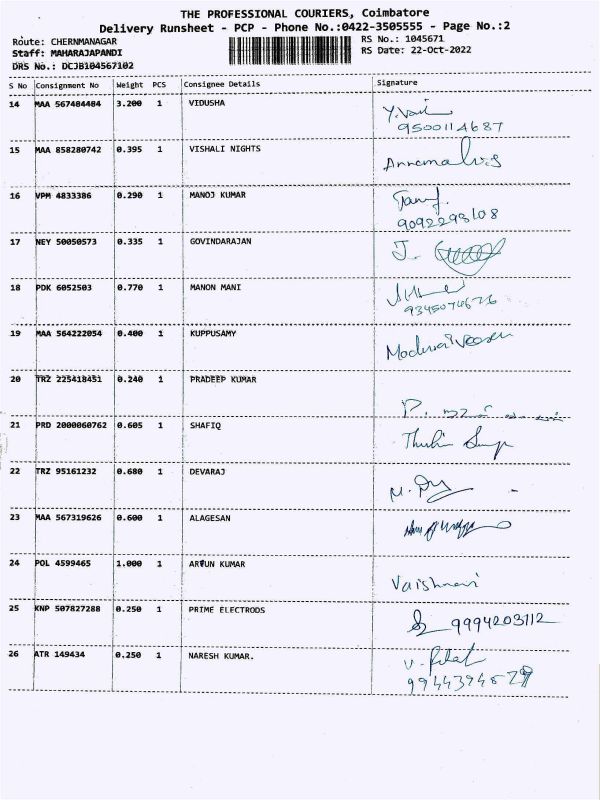 THE PROFESSIONAL COURIERS, Coimbatore
Delivery Runsheet - PCP - Phone No.:0422-3505555 - Page No.:2
Route: CHERNMANAGAR
RS No.: 1045671
Staff: MAHARAJAPANDI
RS Date: 22-Oct-2022
DRS No.: DCJB104567102
S No Consignment No Weight PCS Consignee Details Signature
14 MAA 567484484 3.200 1 VIDUSHA
9500114687
15 MAA 858280742 0.395 1 VISHALI NIGHTS
16 VPM 4833386 0.290 1 MANOJ KUMAR
9092293108
17 NEY 50050573 0.335 1 GOVINDARAJAN J.
18 PDK 6052503 0.770 1 MANON MANI
9345074676
19 MAA 564222054 0.400 1 KUPPUSAMY
20 TRZ 225418451 0.240 1 PRADEEP KUMAR
P.
21 PRD 2000060762 0.605 1 SHAFIQ
22 TRZ 95161232 0.680 1 DEVARAJ
23 MAA 567319626 0.600 1 ALAGESAN
24 POL 4599465 1.000 1 ARJUN KUMAR
Vaishnavi
25 KNP 507827288 0.250 1 PRIME ELECTRODS
9994203112
26 ATR 149434 0.250 1 NARESH KUMAR.